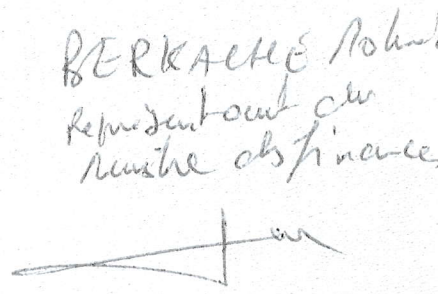 BERKACHE
Représentant du
Ministre des finances